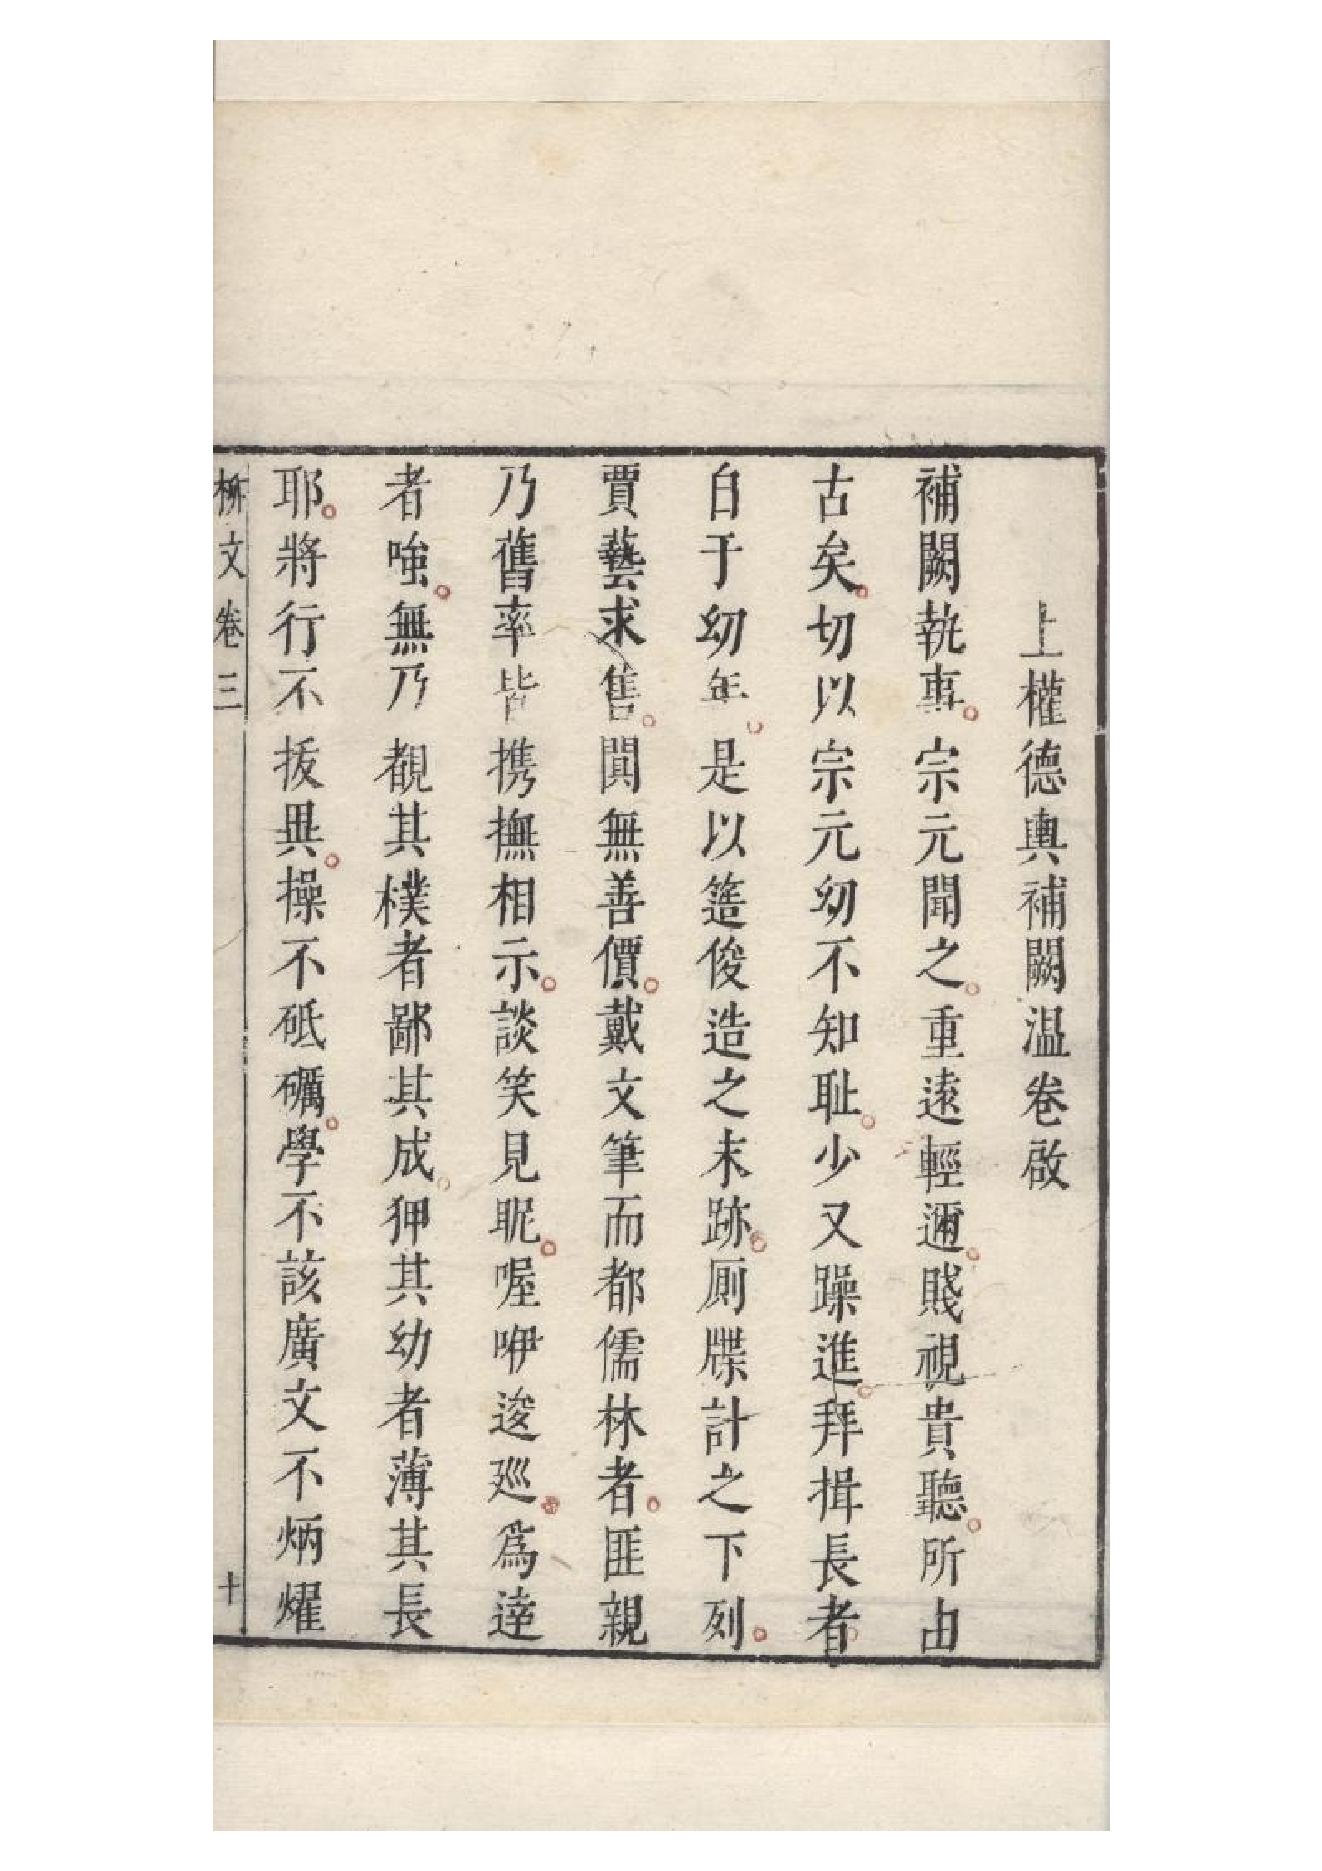 上權德輿補闕溫卷啟
補闕執事。宗元聞之。重遠輕邇。賤視貴聽。所由
古矣。切以宗元幼不知恥。少又躁進。拜揖長者。
自于幼年。是以簉俊造之末跡。厠牒計之下列。
賈藝求售。閴無善價。戴文筆而都儒林者。匪親
乃舊率皆携撫相示。談笑見昵。喔咿逡巡。爲達
者嗤。無乃覩其樸者鄙其成。狎其幼者薄其長
耶。將行不拔異。操不砥礪。學不該廣文不炳燿
柳文卷三 十